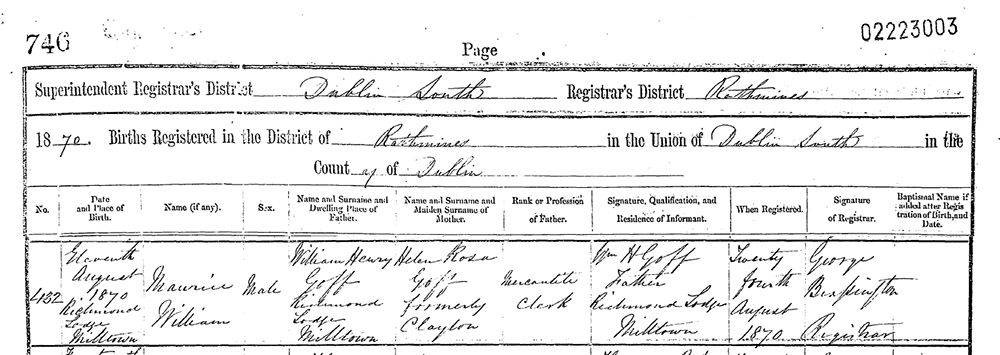 746
02223003
Page
Superintendent Registrar's District Dublin South Registrar's District Rathmines
1870. Births Registered in the District of Rathmines in the Union of Dublin South in the
County of Dublin
No.
Date
and Place of
Birth.
Name (if any).
Sex.
Name and Surname and
Dwelling Place of
Father.
Name and Surname and
Maiden Surname of
Mother.
Rank or Profession
of Father.
Signature, Qualification, and
Residence of Informant.
When Registered.
Signature
of Registrar.
Baptismal Name if
added after Regis
tration of Birth, and
Date.
452
Eleventh
August
1870
Richmond
Lodge
Milltown
Maurice
William
Male
William Henry
Goff
Richmond
Lodge
Milltown
Helen Rosa
Goff
formerly
Clayton
Mercantile
Clerk
Wm H Goff
Father
Richmond Lodge
Milltown
Twenty
fourth
August
1870
George
Registrar